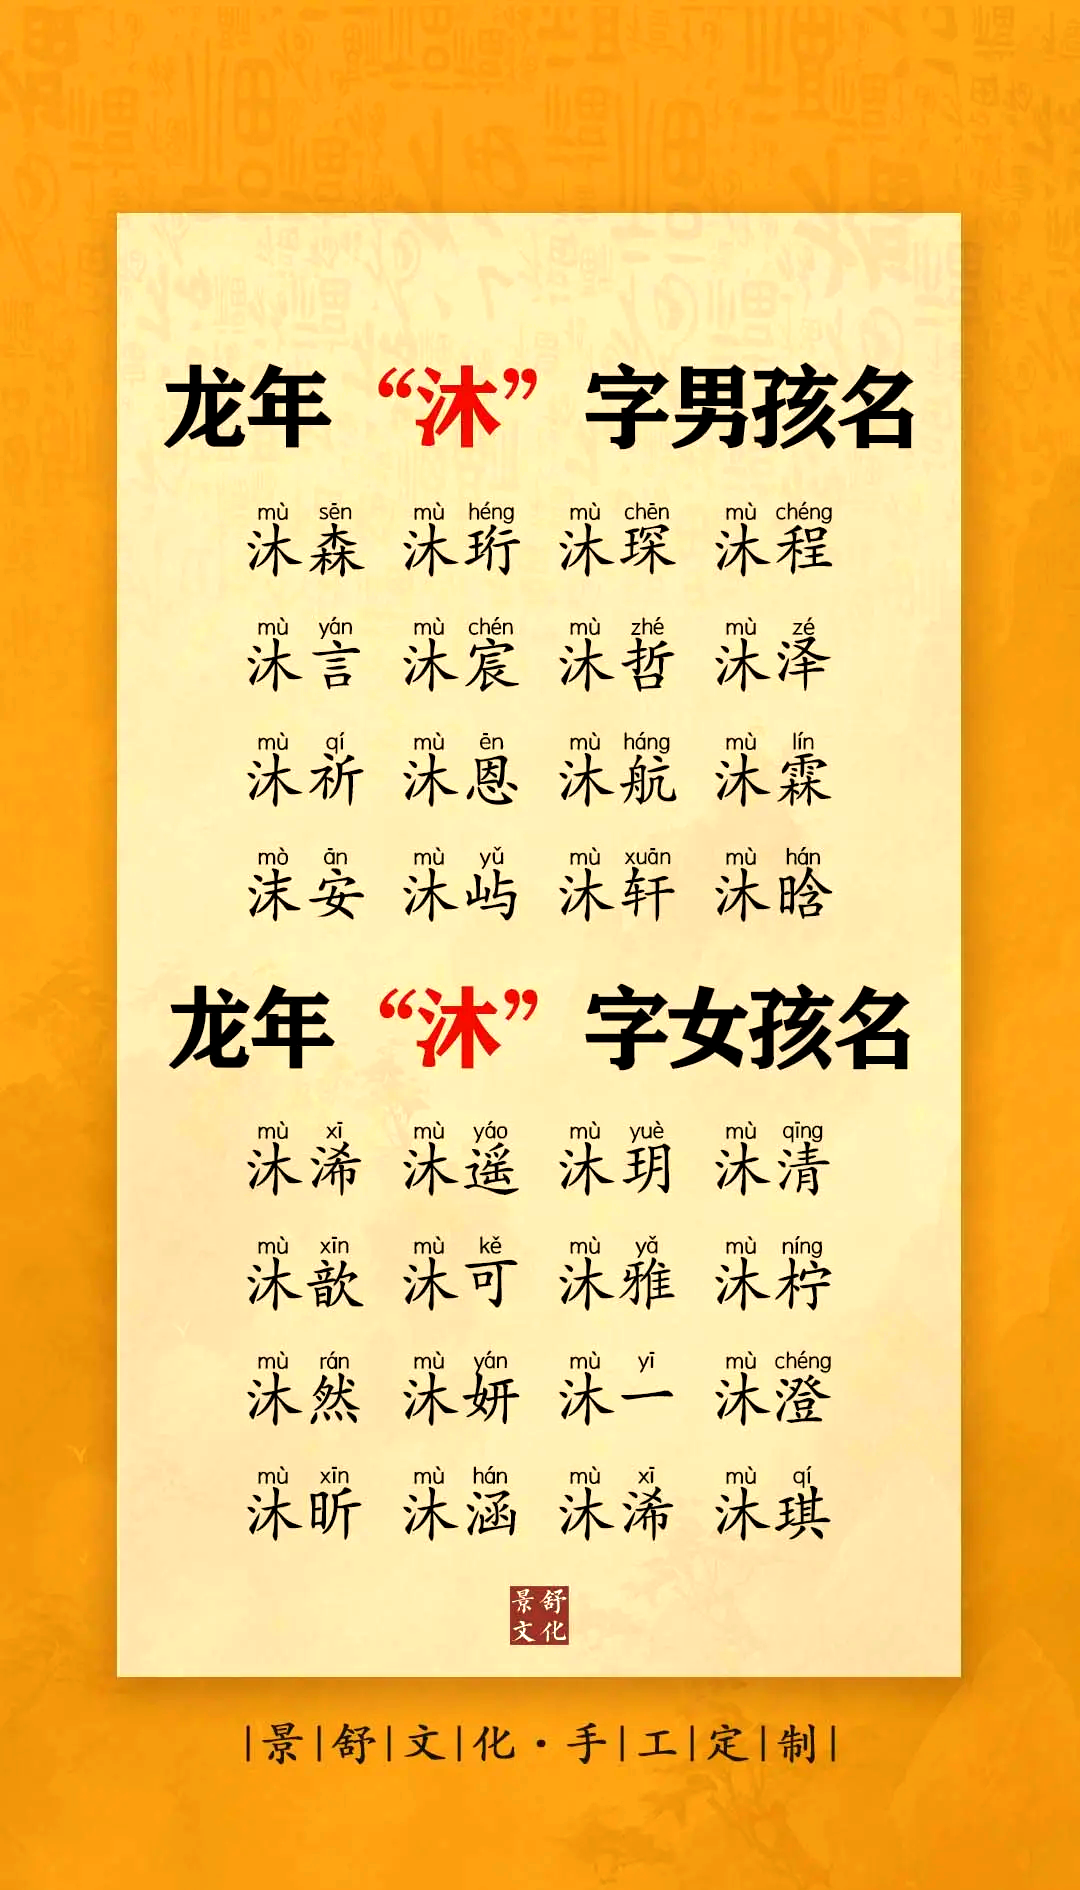 龙年“沐”字男孩名
mù sēn mù héng mù chēn mù chéng
沐森 沐珩 沐琛 沐程
mù yán mù chén mù zhé mù zé
沐言 沐宸 沐哲 沐泽
mù qí mù ēn mù háng mù lín
沐祈 沐恩 沐航 沐霖
mò ān mù yǔ mù xuān mù hán
沫安 沐屿 沐轩 沐晗
龙年“沐”字女孩名
mù xī mù yáo mù yuè mù qīng
沐浠 沐遥 沐玥 沐清
mù xīn mù kě mù yǎ mù níng
沐歆 沐可 沐雅 沐柠
mù rán mù yán mù yī mù chéng
沐然 沐妍 沐一 沐澄
mù xīn mù hán mù xī mù qí
沐昕 沐涵 沐浠 沐琪
景舒
文化
|景|舒|文|化·手|工|定|制|